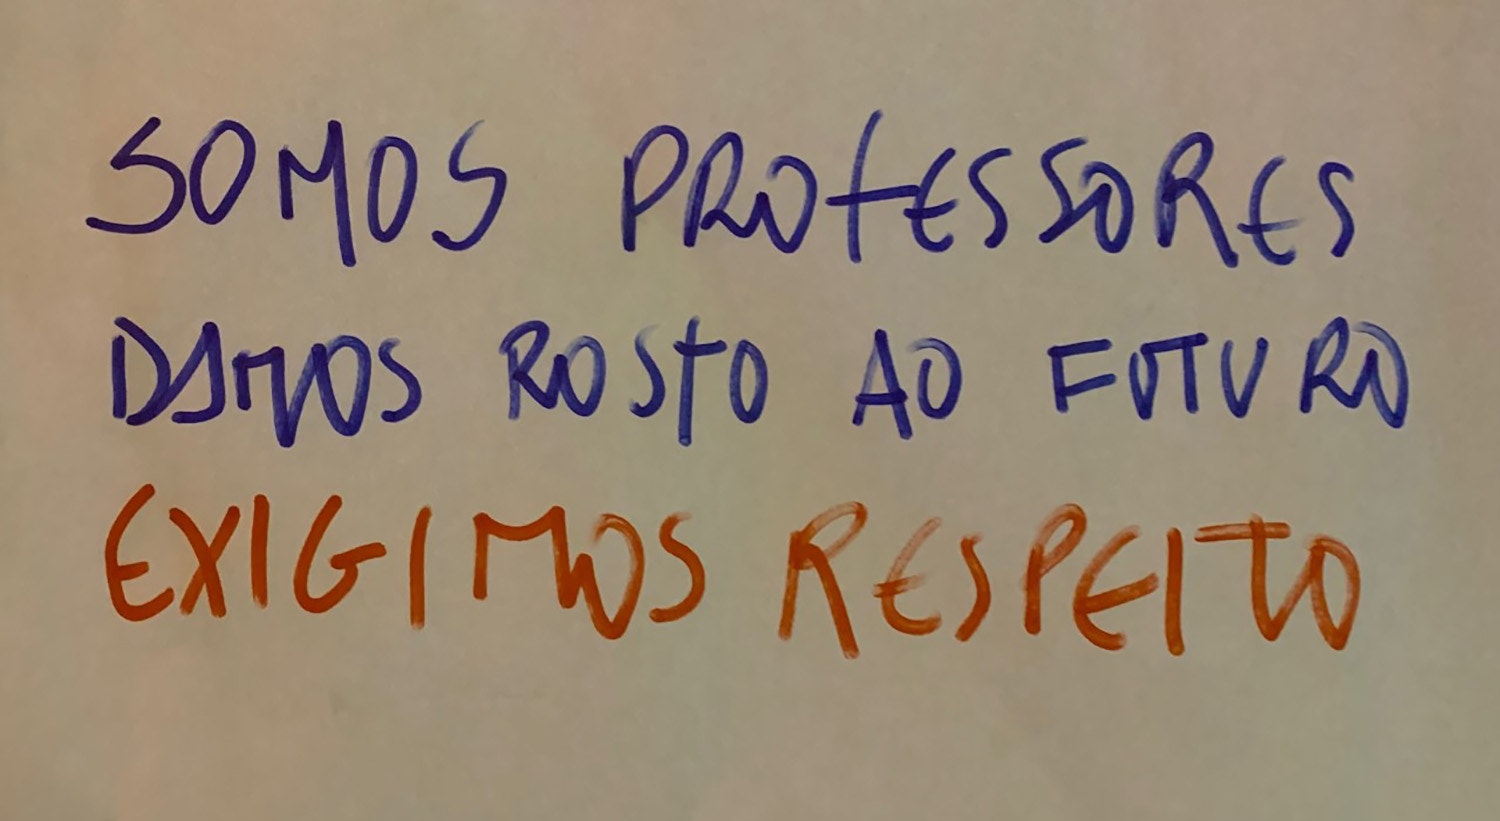 SOMOS PROFESSORES
DAMOS ROSTO AO FUTURO
EXIGIMOS RESPEITO